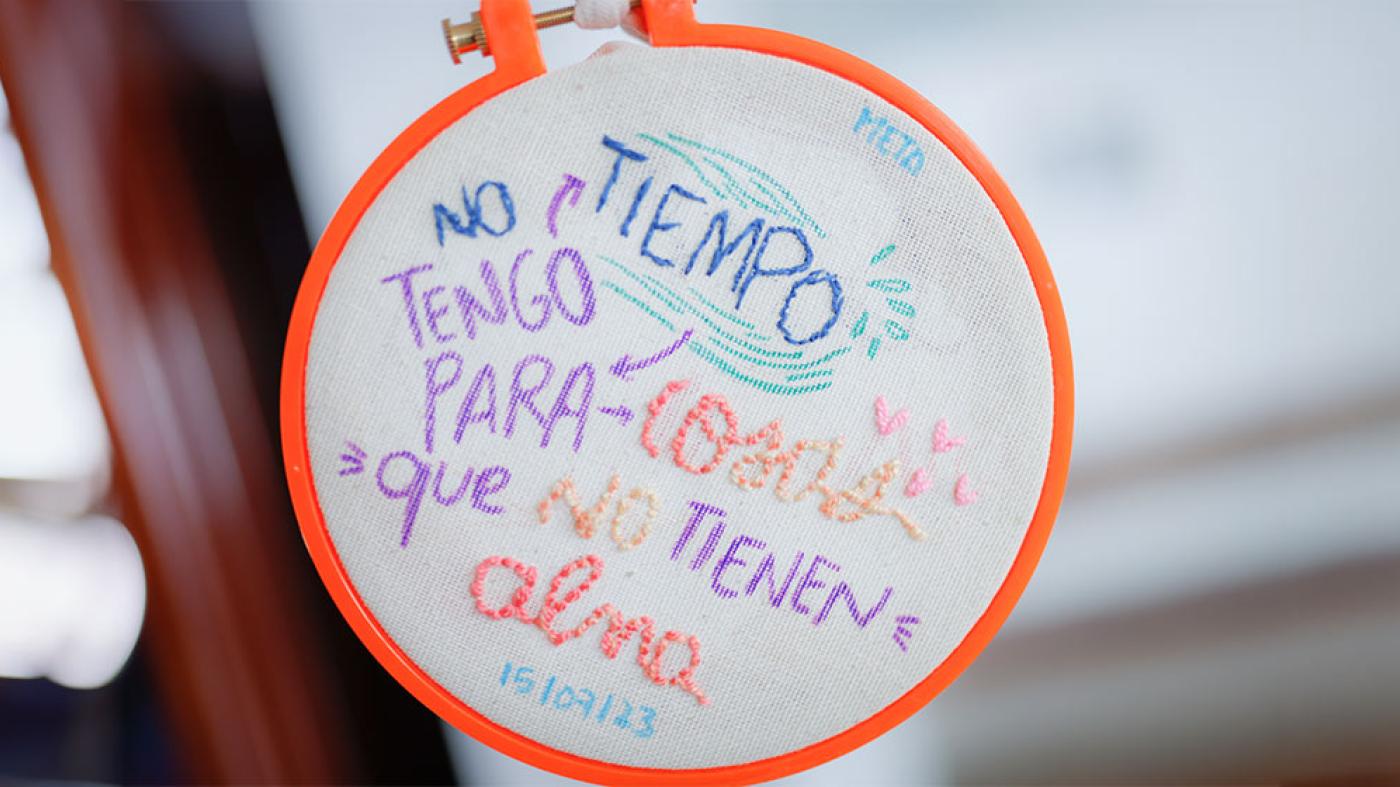 META
NO TIEMPO
TENGO
PARA cosas
que NO TIENEN
alma
15/07/23